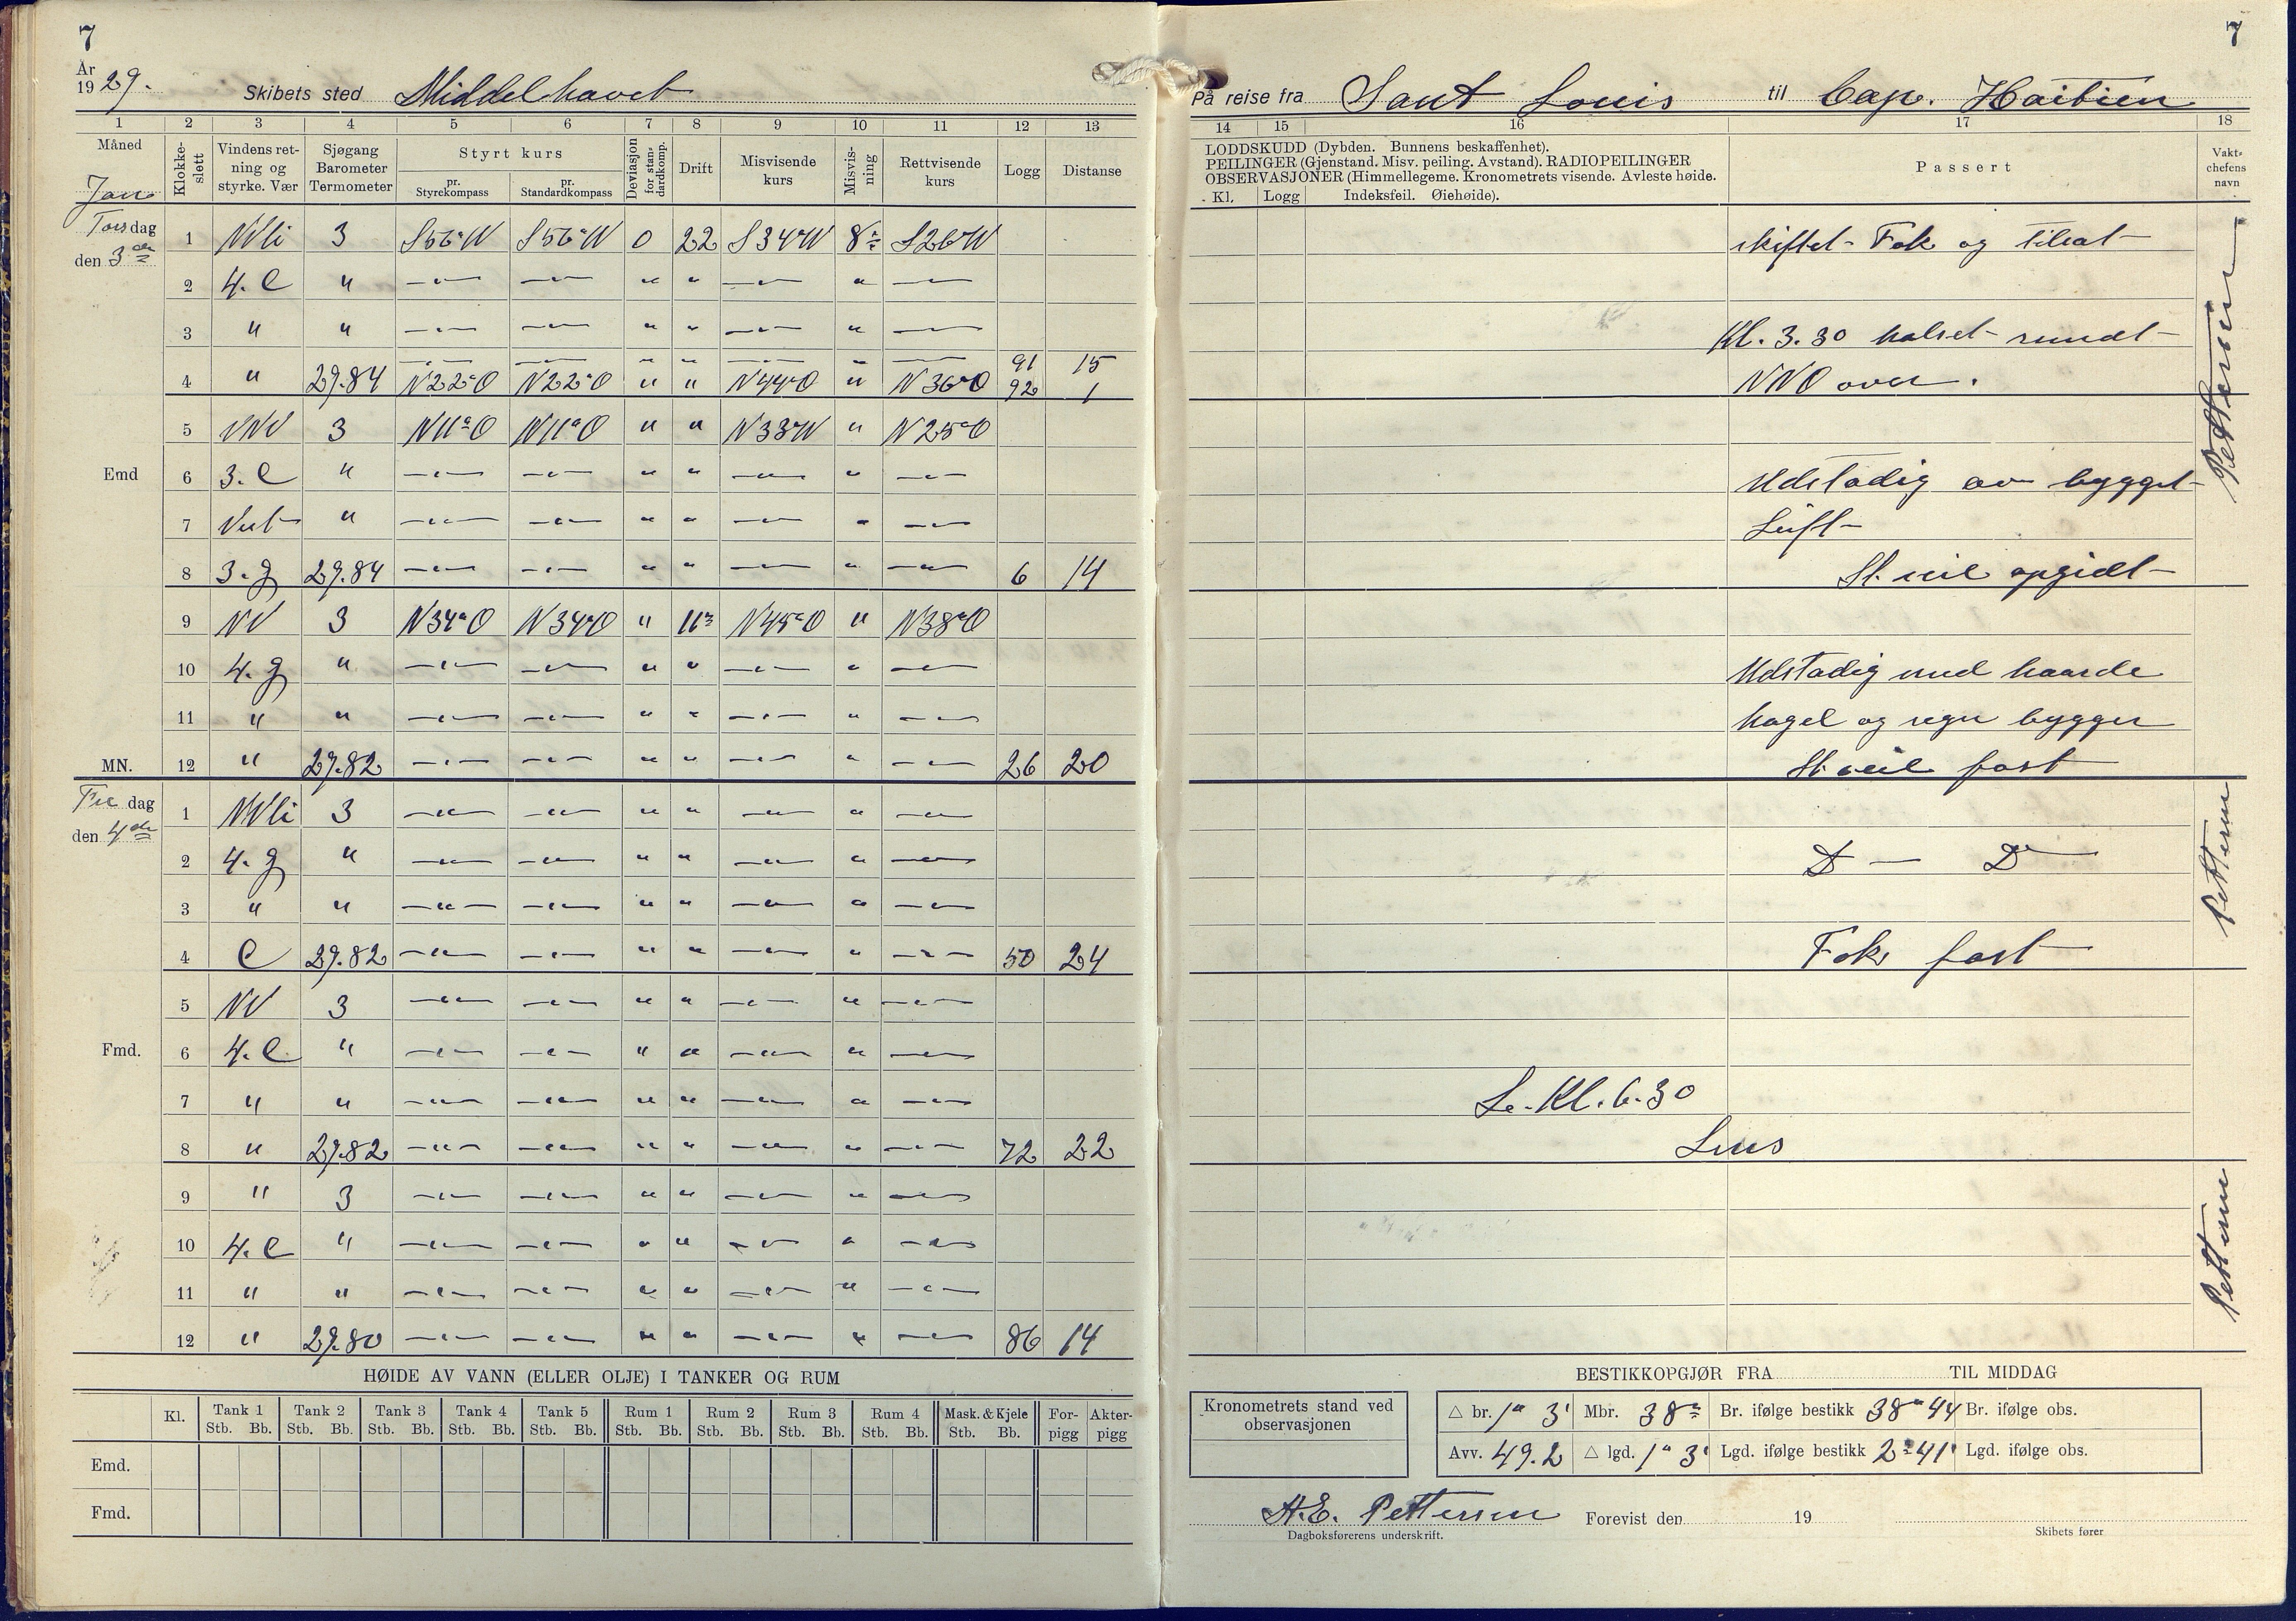 7
År
1929.
Skibets sted Middelhavet
1 2 3 4 5 6 7 8 9 10 11 12 13
Måned
Jan
Klokke-slett
Vindens retning og styrke. Vær
Sjøgang Barometer Termometer
Styrt kurs
pr. Styrekompass
pr. Standardkompass
Deviasjon for standardkomp.
Drift
Misvisende kurs
Misvis-ning
Rettvisende kurs
Logg
Distanse
Torsdag
den 3die
1 3 S56°W S56°W 0 22 S34°W 8° S26°W
2 4. C " —"— —"— " " —"— " —"—
3 " " —"— —"— " " —"— " —"—
—"— —"— " " —"— " —"— 91 15
4 " 29.84 N22°O N22°O " " N44°O " N36°O 92 1
5 3 N11°O N11°O " " N33°W " N25°O
Emd
6 3. C " —"— —"— " " —"— " —"—
7 " —"— —"— " " —"— " —"—
8 3. g 29.84 —"— —"— " " —"— " —"— 6 14
9 NV 3 N34°O N34°O " 11° N45°O " N38°O
10 4. g " —"— —"— " " —"— " —"—
11 " " —"— —"— " " —"— " —"—
MN.
12 " 29.82 —"— —"— " " —"— " —"— 26 20
Fredag
den 4de
1 3 —"— —"— " " —"— " —"—
2 4. g " —"— —"— " " —"— " —"—
3 " " —"— —"— " " —"— " —"—
4 C 29.82 —"— —"— " " —"— " —"— 50 24
5 NV 3 —"— —"— " " —"— " —"—
Fmd.
6 4. C " —"— —"— " " —"— " —"—
7 " " —"— —"— " " —"— " —"—
8 " 29.82 —"— —"— " " —"— " —"— 72 22
9 " 3 —"— —"— " " —"— " —"—
10 4. C " —"— —"— " " —"— " —"—
11 " " —"— —"— " " —"— " —"—
12 " 29.80 —"— —"— " " —"— " —"— 86 14
HØIDE AV VANN (ELLER OLJE) I TANKER OG RUM
Kl. Tank 1 Tank 2 Tank 3 Tank 4 Tank 5 Rum 1 Rum 2 Rum 3 Rum 4 Mask. & Kjele For-pigg Akter-pigg
Stb. Bb. Stb. Bb. Stb. Bb. Stb. Bb. Stb. Bb. Stb. Bb. Stb. Bb. Stb. Bb. Stb. Bb. Stb. Bb.
Emd.
Fmd.
7
På reise fra Sant Louis til Cap. Haitien
14 15 16 17 18
LODDSKUDD (Dybden. Bunnens beskaffenhet).
PEILINGER (Gjenstand. Misv. peiling. Avstand). RADIOPEILINGER
OBSERVASJONER (Himmellegeme. Kronometrets visende. Avleste høide.
Kl. Logg Indeksfeil. Øiehøide).
Passert
Vakt-chefens navn
skiftet Fok og tilsat
Kl. 3.30 halset rundt
NNO over.
Pettersen
Udstadig av bygget
Luft
St. seil opgidt
Udstadig med haarde
hagel og regn bygger
St. seil fast
D — D
Fok fast
Pettersen
Kl. 6.30
Pettersen
BESTIKKOPGJØR FRA TIL MIDDAG
Kronometrets stand ved observasjonen
△ br. 1° 3' Mbr. 38° Br. ifølge bestikk 38° 44 Br. ifølge obs.
Avv. 49.2 △ lgd. 1° 3' Lgd. ifølge bestikk 2° 41' Lgd. ifølge obs.
H.E. Pettersen Forevist den 19
Dagboksførerens underskrift.
Skibets fører